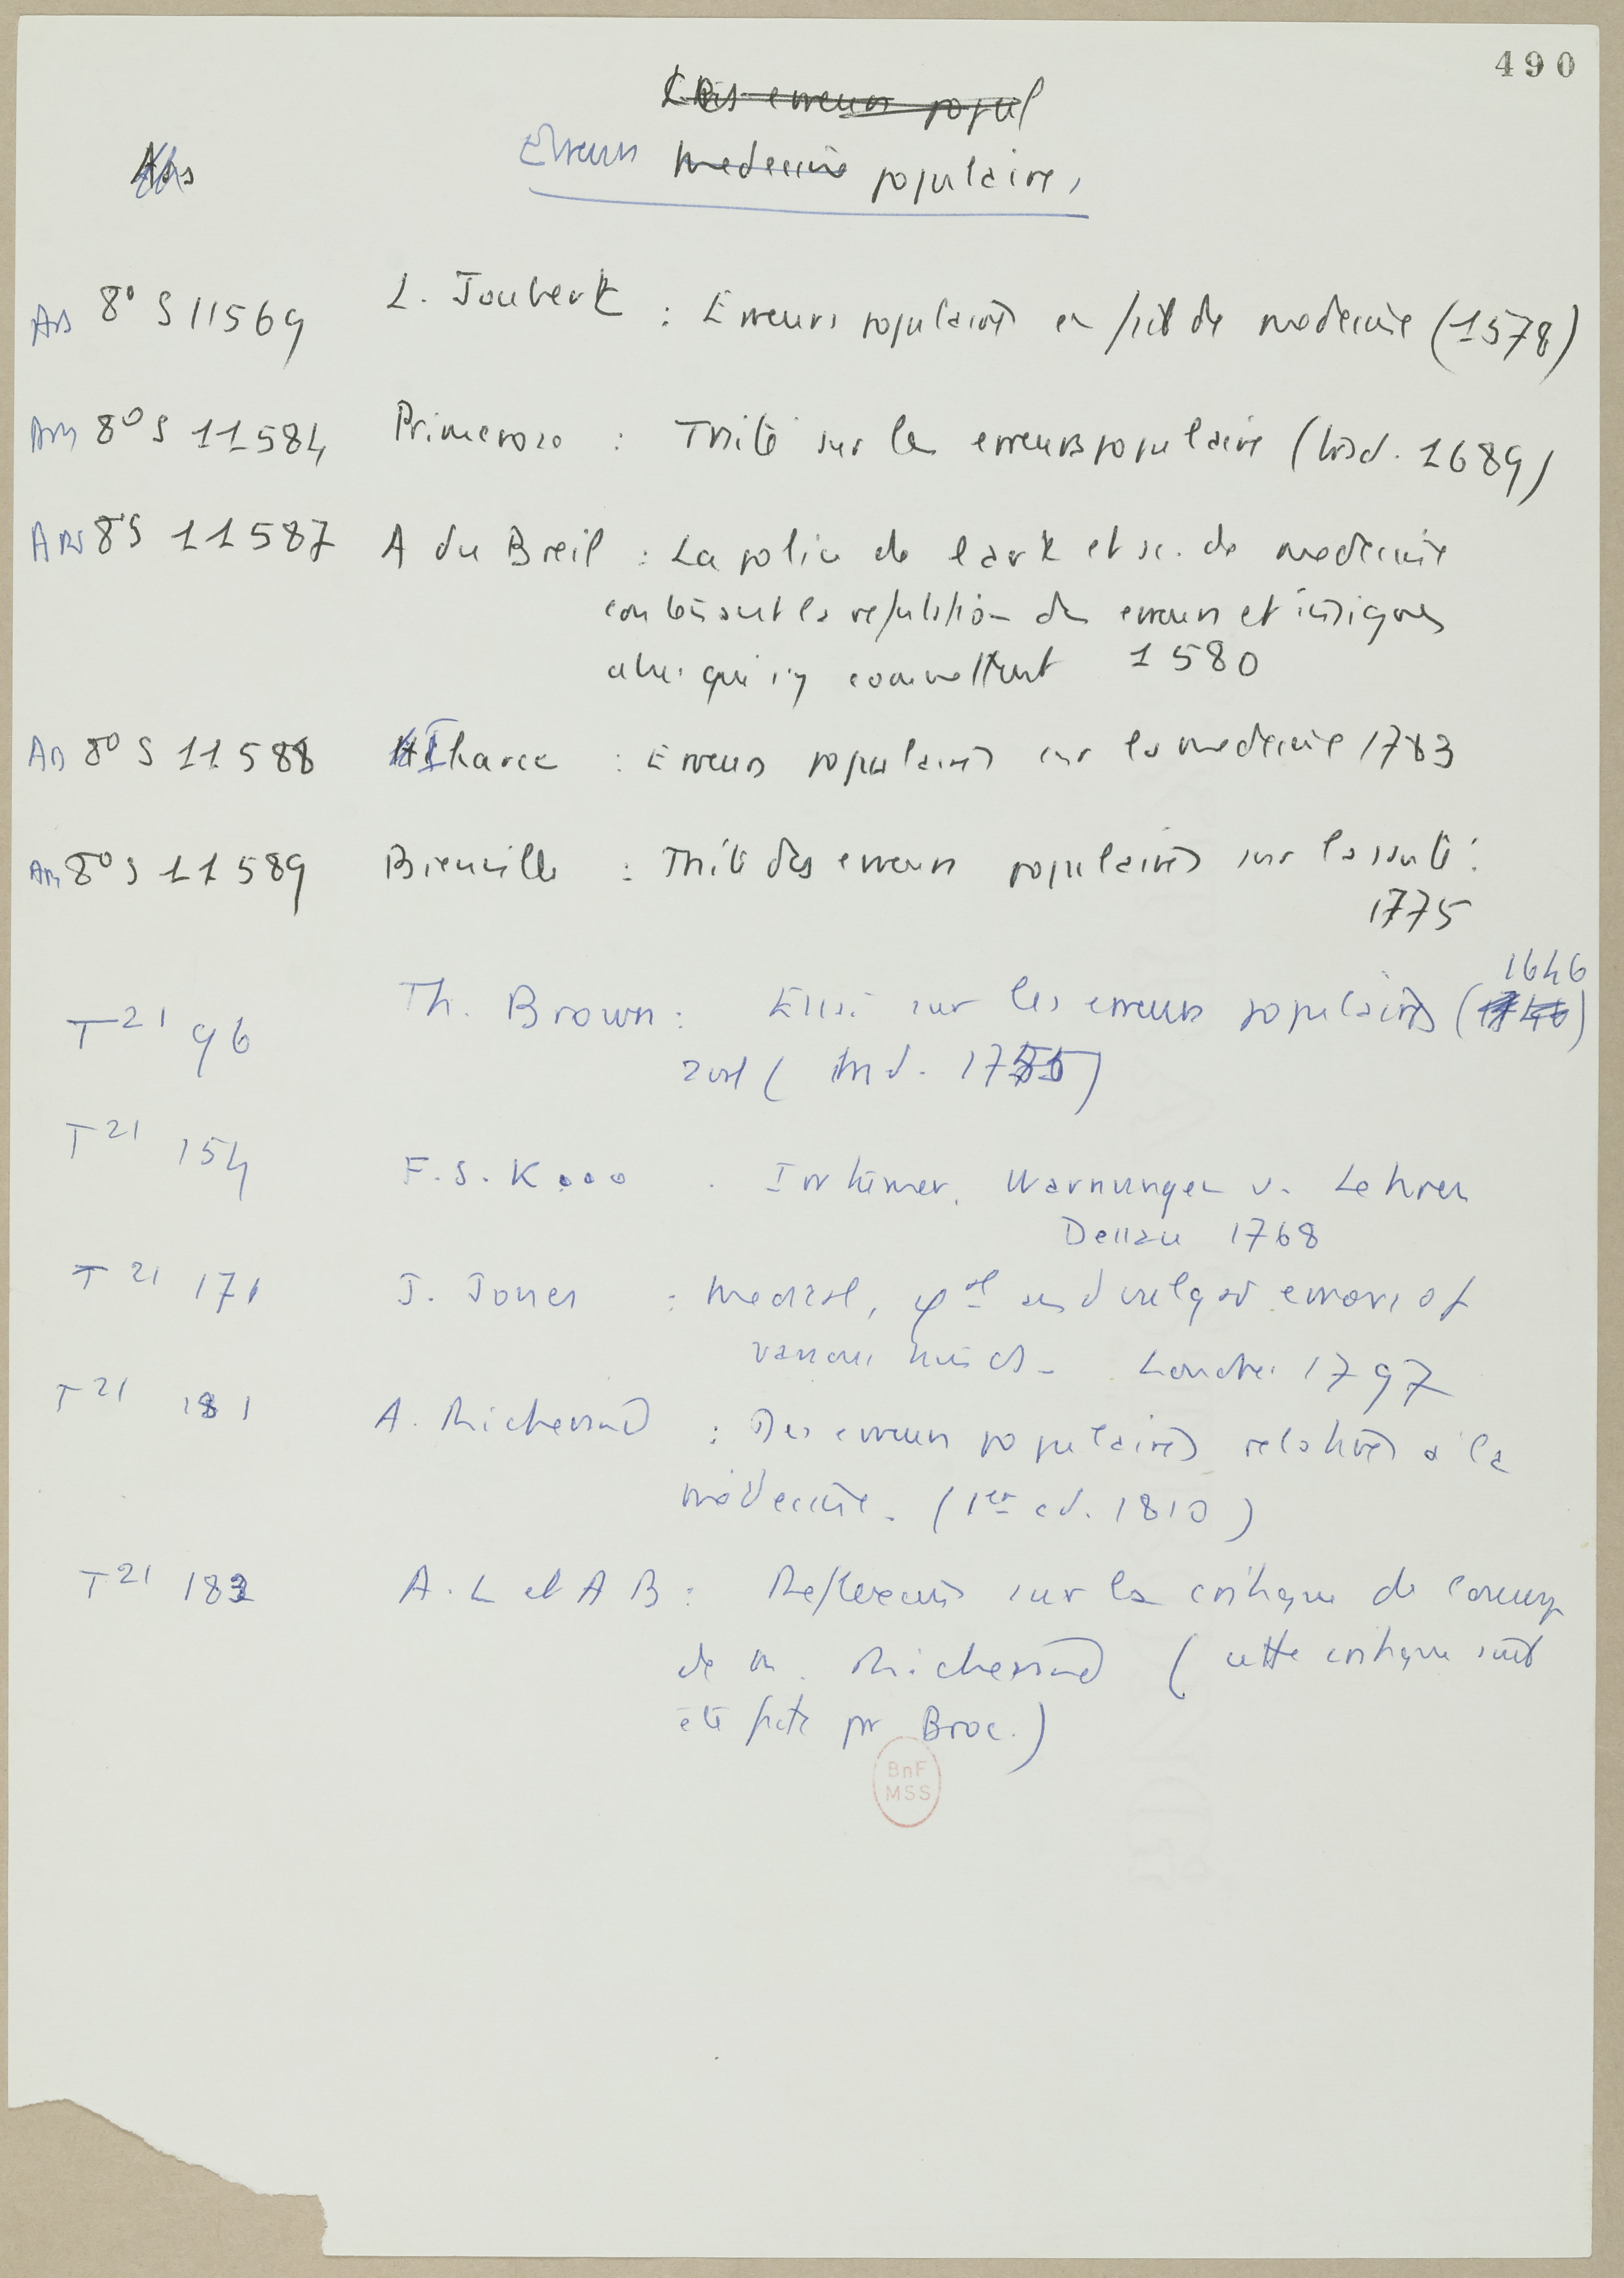 490
Les erreurs popul
Ars
Erreurs Medecine populaires
Ars 8° S 11569 L. Joubert : Erreurs populaires en fait de medecine (1578)
Ars 8° S 11584 Primerose : Traité sur les erreurs populaires (trad. 1689)
Ars 8° S 11587 A du Breil : La police de l'art et sc. de medecine
contenant la refutation des erreurs et insignes
abus qui s'y commettent 1580
Ars 8° S 11588 Iharce : Erreurs populaires sur la medecine 1783
Ars 8° S 11589 Bienville : Traité des erreurs populaires sur la santé :
1775
1646
T 21 96 Th. Brown : Essai sur les erreurs populaires (1746)
trad. 17
T 21 154 F. S. K... . Irrtümer, Warnungen u. Lehren
Dessau 1768
T 21 171 J. Jones : Medical, φal and vulgar errors of
various kinds - Londres 1797
T 21 181 A. Richerand : Des erreurs populaires relatives à la
médecine. (1er ed. 1810)
T 21 183 A. L et A B : Reflexions sur la critique de l'ouvrage
de M. Richerand (cette critique ait
été faite par Broc.)
BnF
MSS